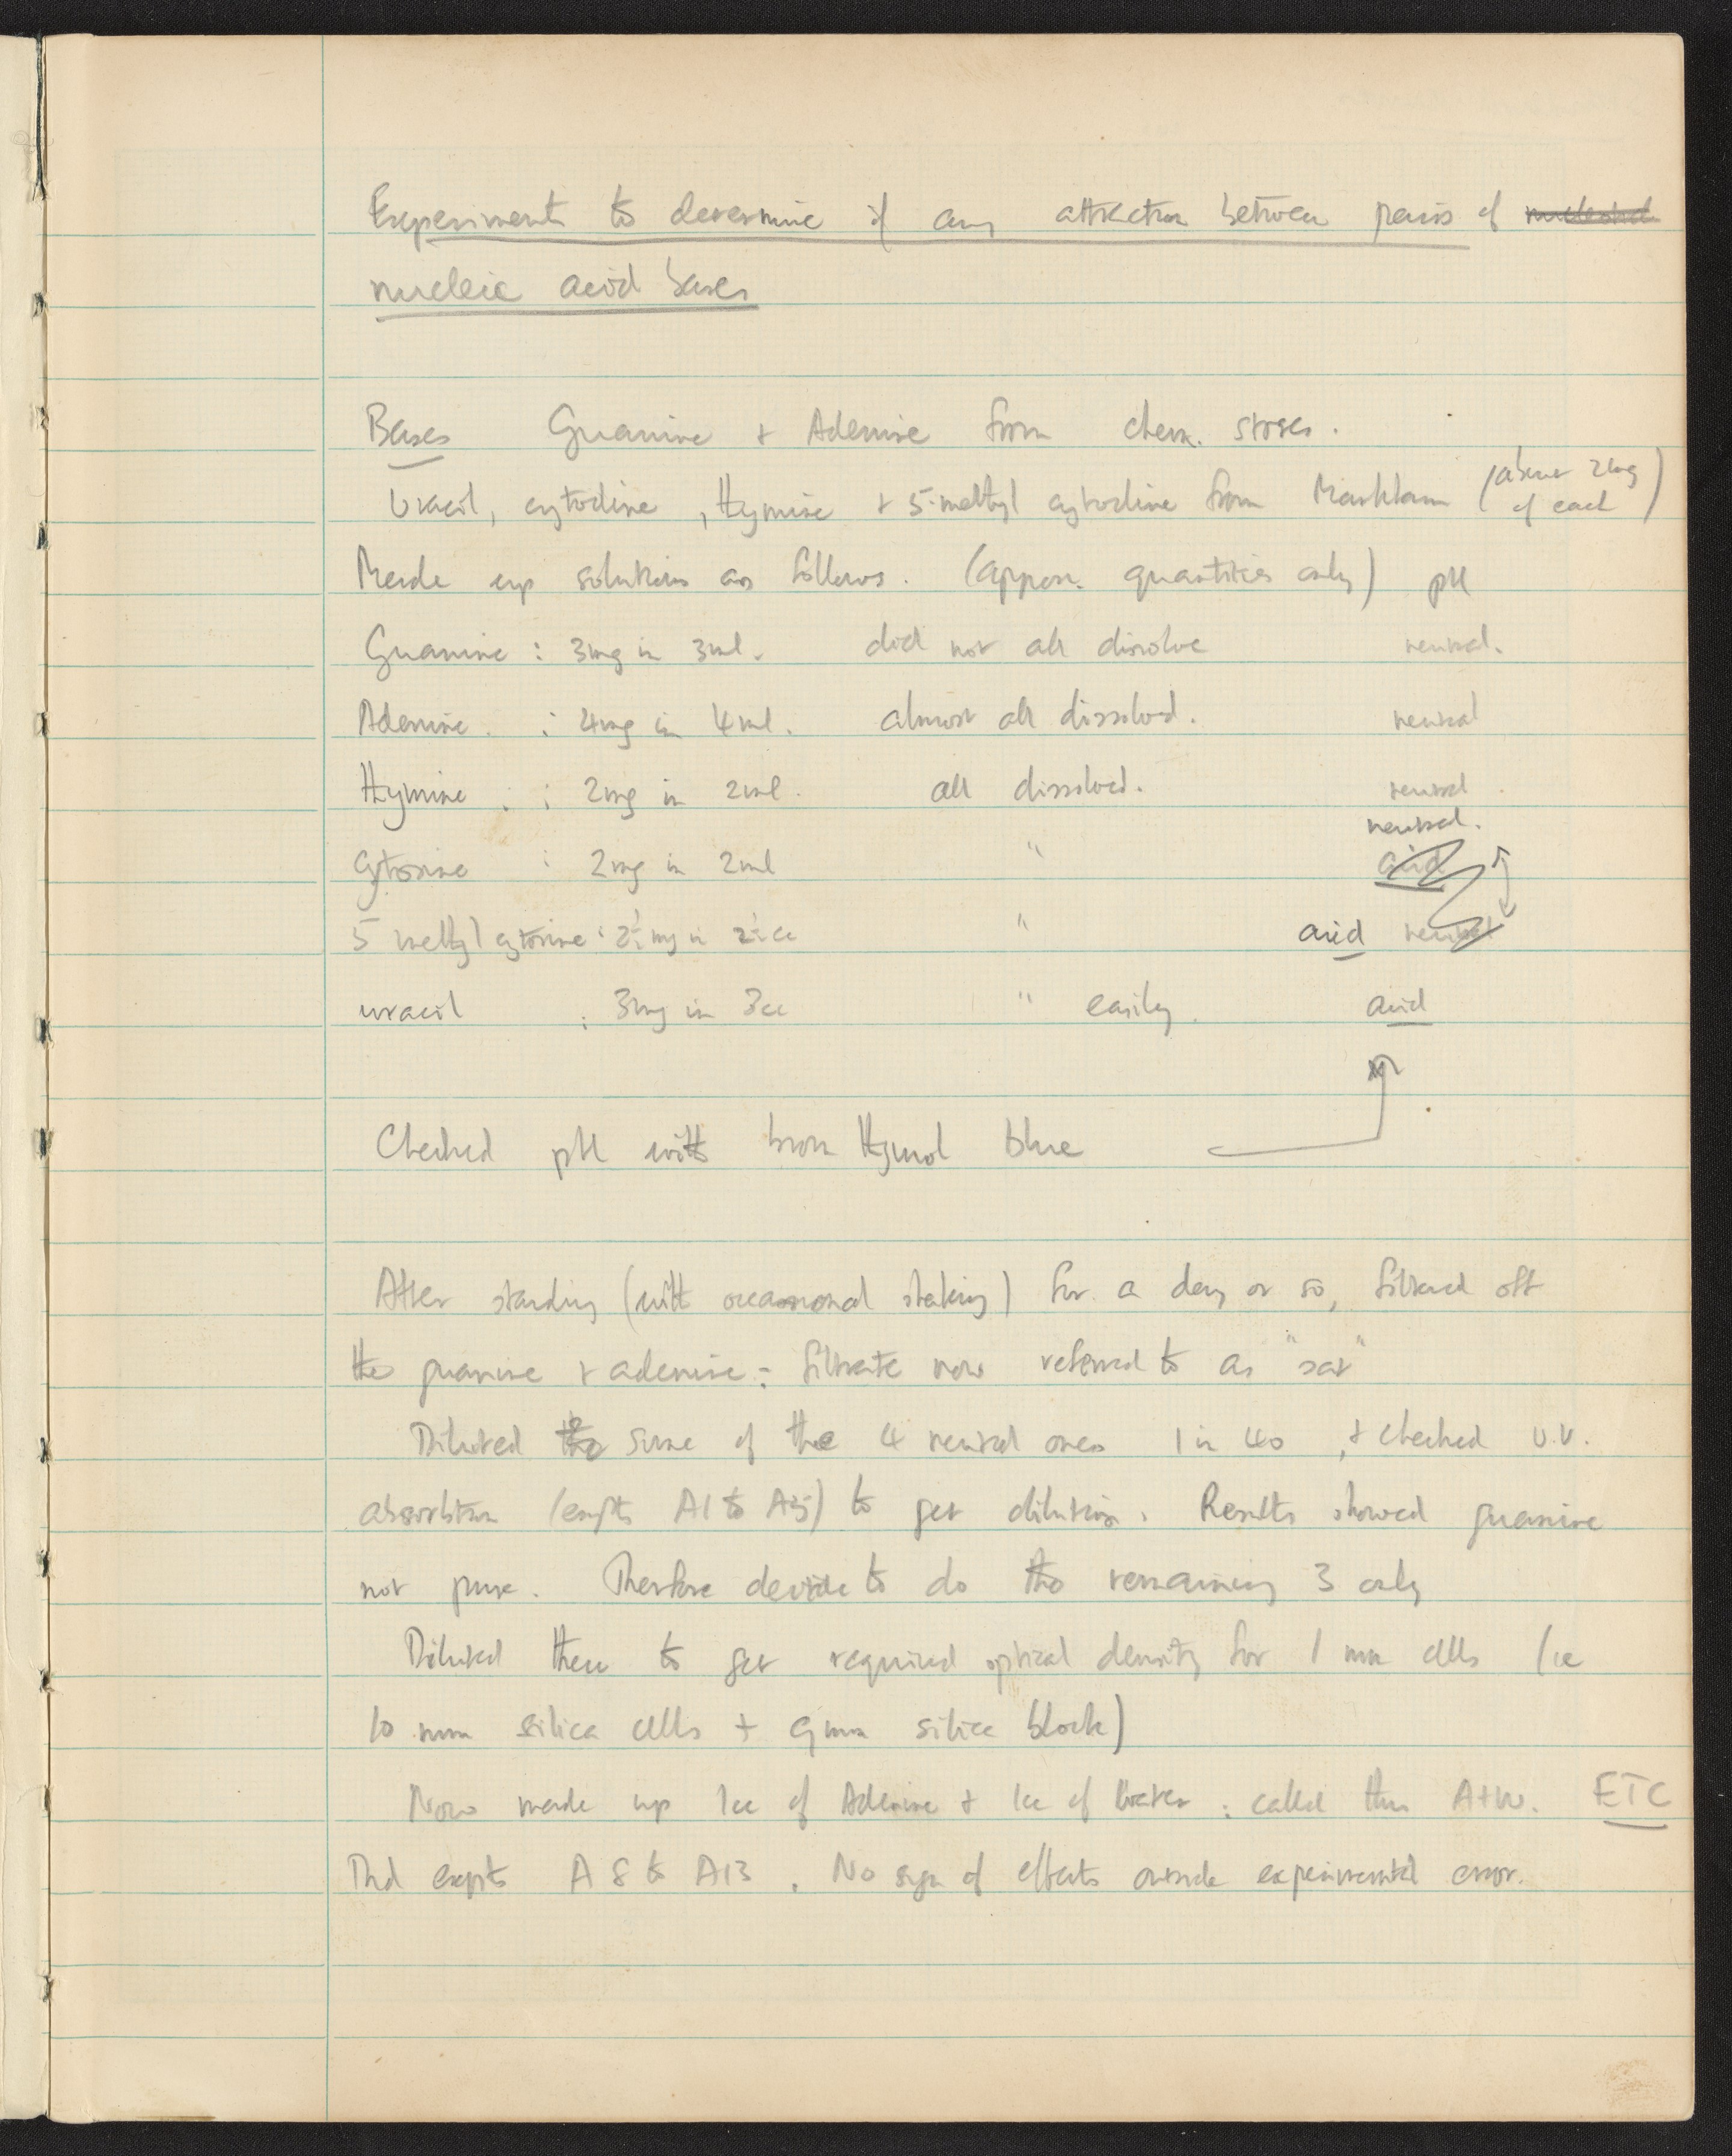 Experiments to determine if any attraction between pairs of
nucleic acid bases
Bases Guanine + Adenine from chem. stores.
Uracil, cytodine, thymine + 5-methyl cytodine from Markham (about 2mg of each)
Made up solutions as follows. (approx. quantities only) pH
Guanine : 3mg in 3ml. did not all dissolve neutral.
Adenine. : 4mg in 4ml. almost all dissolved. neutral
Thymine : : 2mg in 2ml. all dissolved. neutral.
neutral.
Cytosine : 2mg in 2ml " acid
5 methyl cytosine : 2½mg in 2½cc " acid neutral
uracil : 3mg in 3cc " easily. acid
Checked pH with brom thymol blue
After standing (with occasional shaking) for a day or so, filtered off
the guanine + adenine: filtrate now referred to as "sat"
Diluted the some of the 4 neutral ones 1 in 40, + checked U.V.
absorbtion (expts A1 to A5) to get dilution. Results showed guanine
not pure. Therefore decide to do the remaining 3 only
Diluted these to get required optical density for 1 mm cells (ie
10 mm silica cells + 9mm silica block)
Now made up 1cc of Adenine + 1cc of Water : called this A+W. ETC
Did expts A8 to A13. No sign of effects outside experimental error.